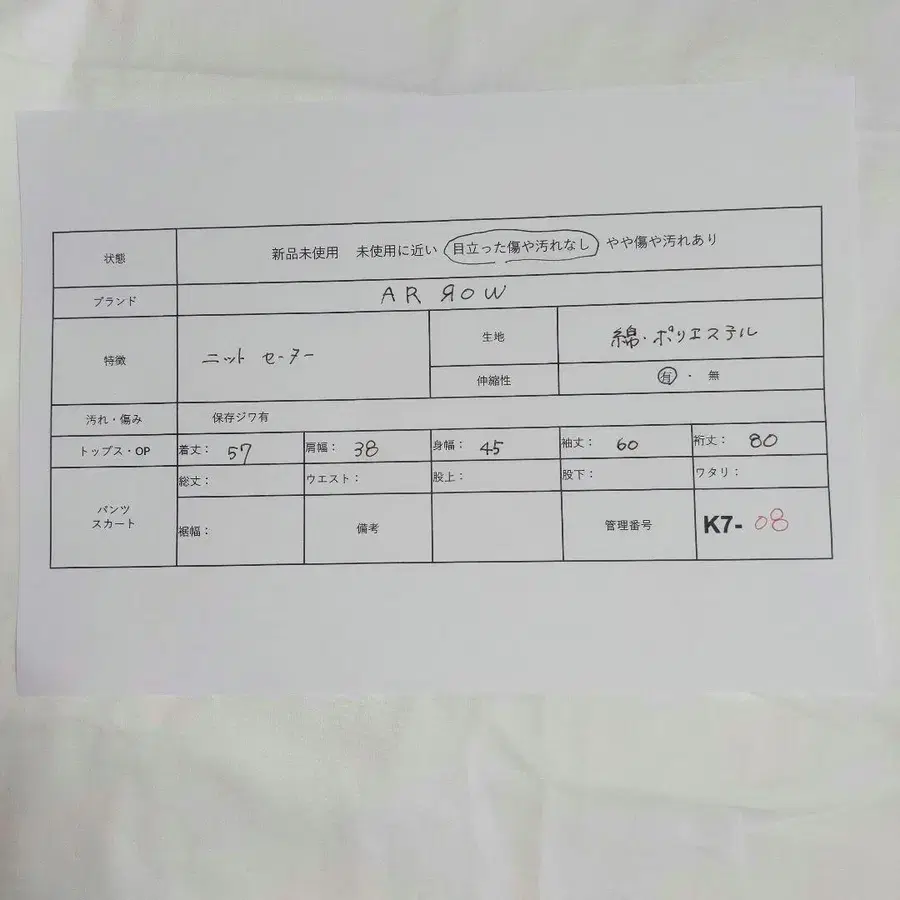 状態 新品未使用 未使用に近い 目立った傷や汚れなし やや傷や汚れあり
ブランド AR ЯOW
特徴 ニット セーター 生地 綿・ポリエステル
伸縮性 有 ・ 無
汚れ・傷み 保存ジワ有
トップス・OP 着丈： 57 肩幅： 38 身幅： 45 袖丈： 60 裄丈： 80
パンツ
スカート
総丈： ウエスト： 股上： 股下： ワタリ：
裾幅： 備考 管理番号 K7- 08